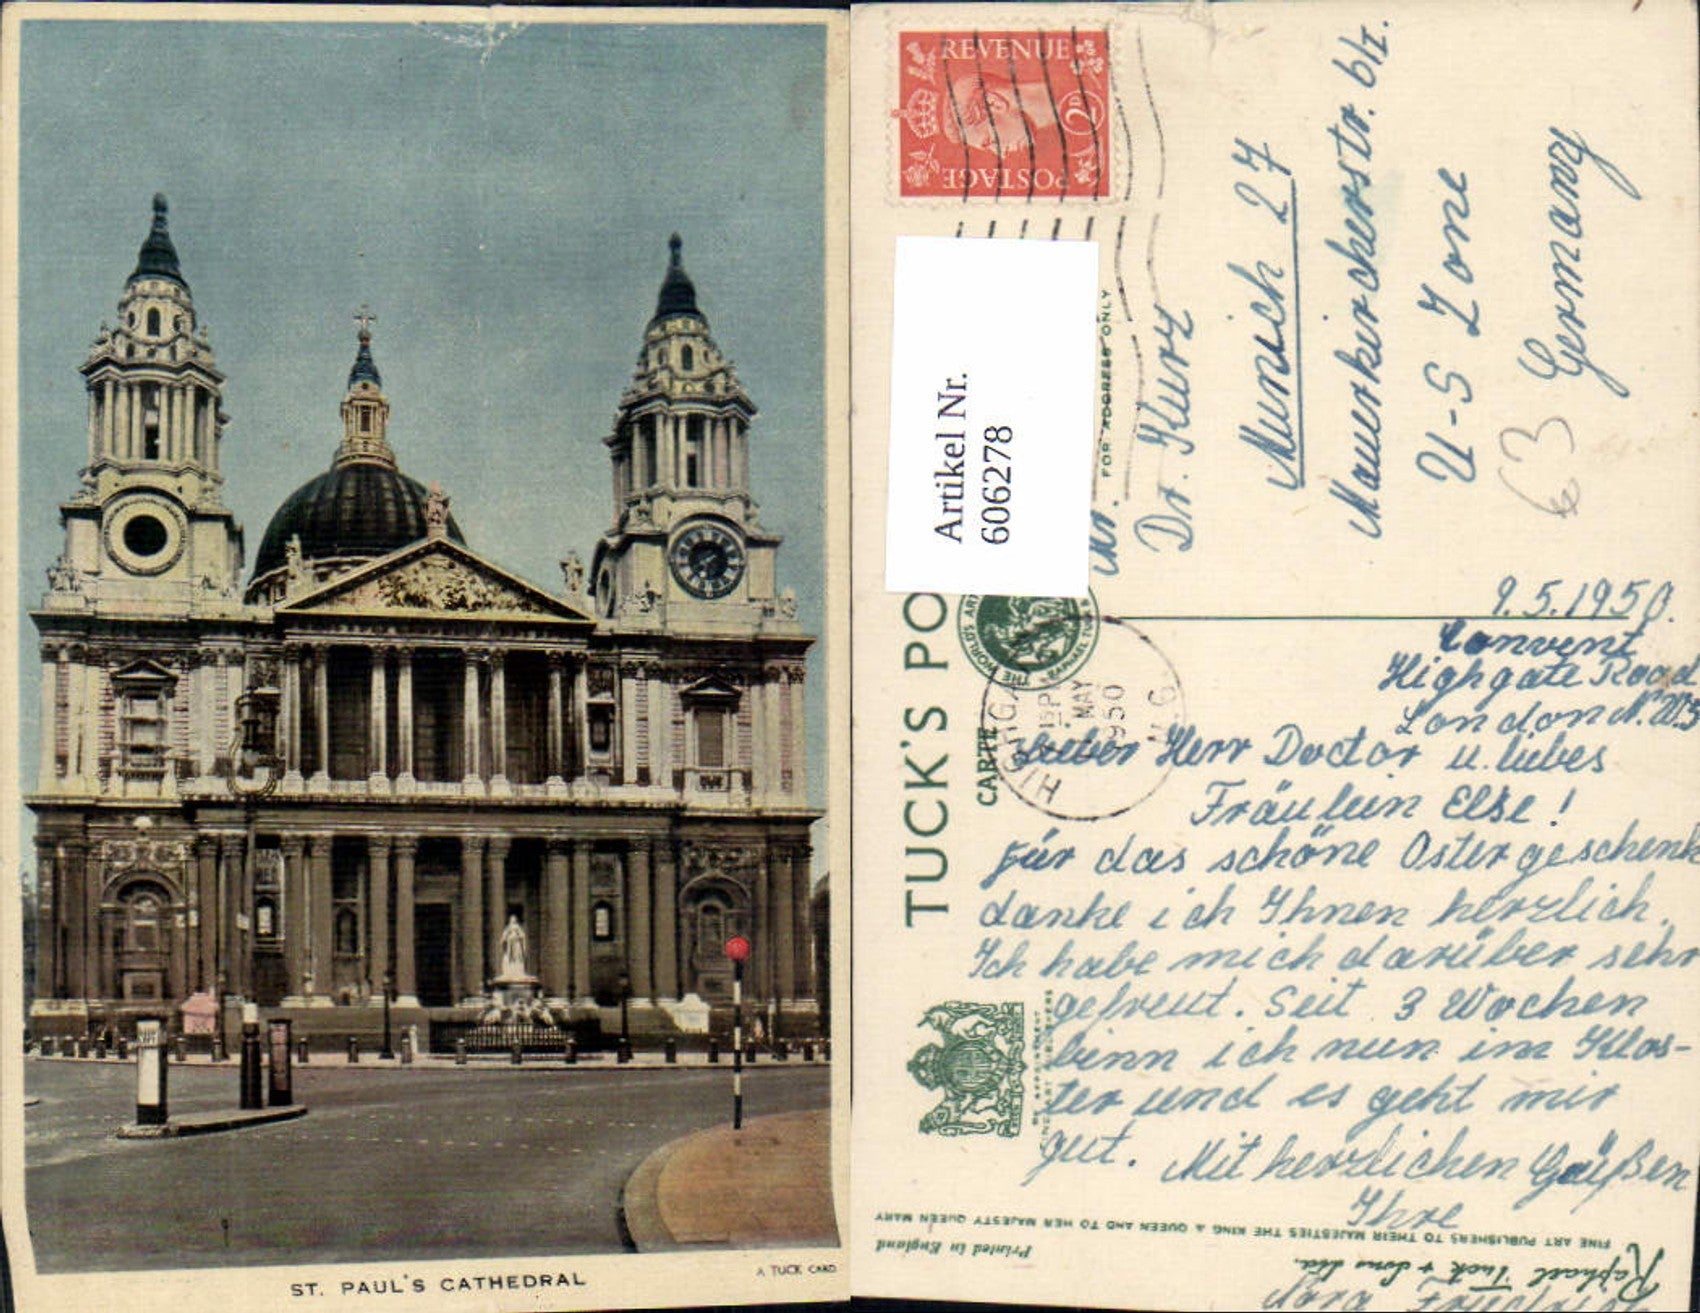 ST. PAUL'S CATHEDRAL
A TUCK CARD
REVENUE
2D
POSTAGE
Artikel Nr.
606278
FOR ADDRESS ONLY
Dr. Kurz
Munich 27
Mauerkircherstr. 6/I.
U-S Zone
Germany
63
TUCK'S PO
CARTE
THE WORLD'S ART
RAPHAEL TUCK
HIGHGA
15 PM
MAY
1950
9.5.1950.
Convent
Highgate Road
London N.W.5
Lieber Herr Doctor u. liebes
Fräulein Else!
für das schöne Ostergeschenk
danke ich Ihnen herzlich.
Ich habe mich darüber sehr
gefreut. Seit 3 Wochen
binn ich nun im Klos-
ter und es geht mir
gut. Mit herzlichen Grüßen
Ihre
BY APPOINTMENT
FINE ART PUBLISHERS TO THEIR MAJESTIES THE KING & QUEEN AND TO HER MAJESTY QUEEN MARY
Raphael Tuck & Sons Ltd.
Printed in England